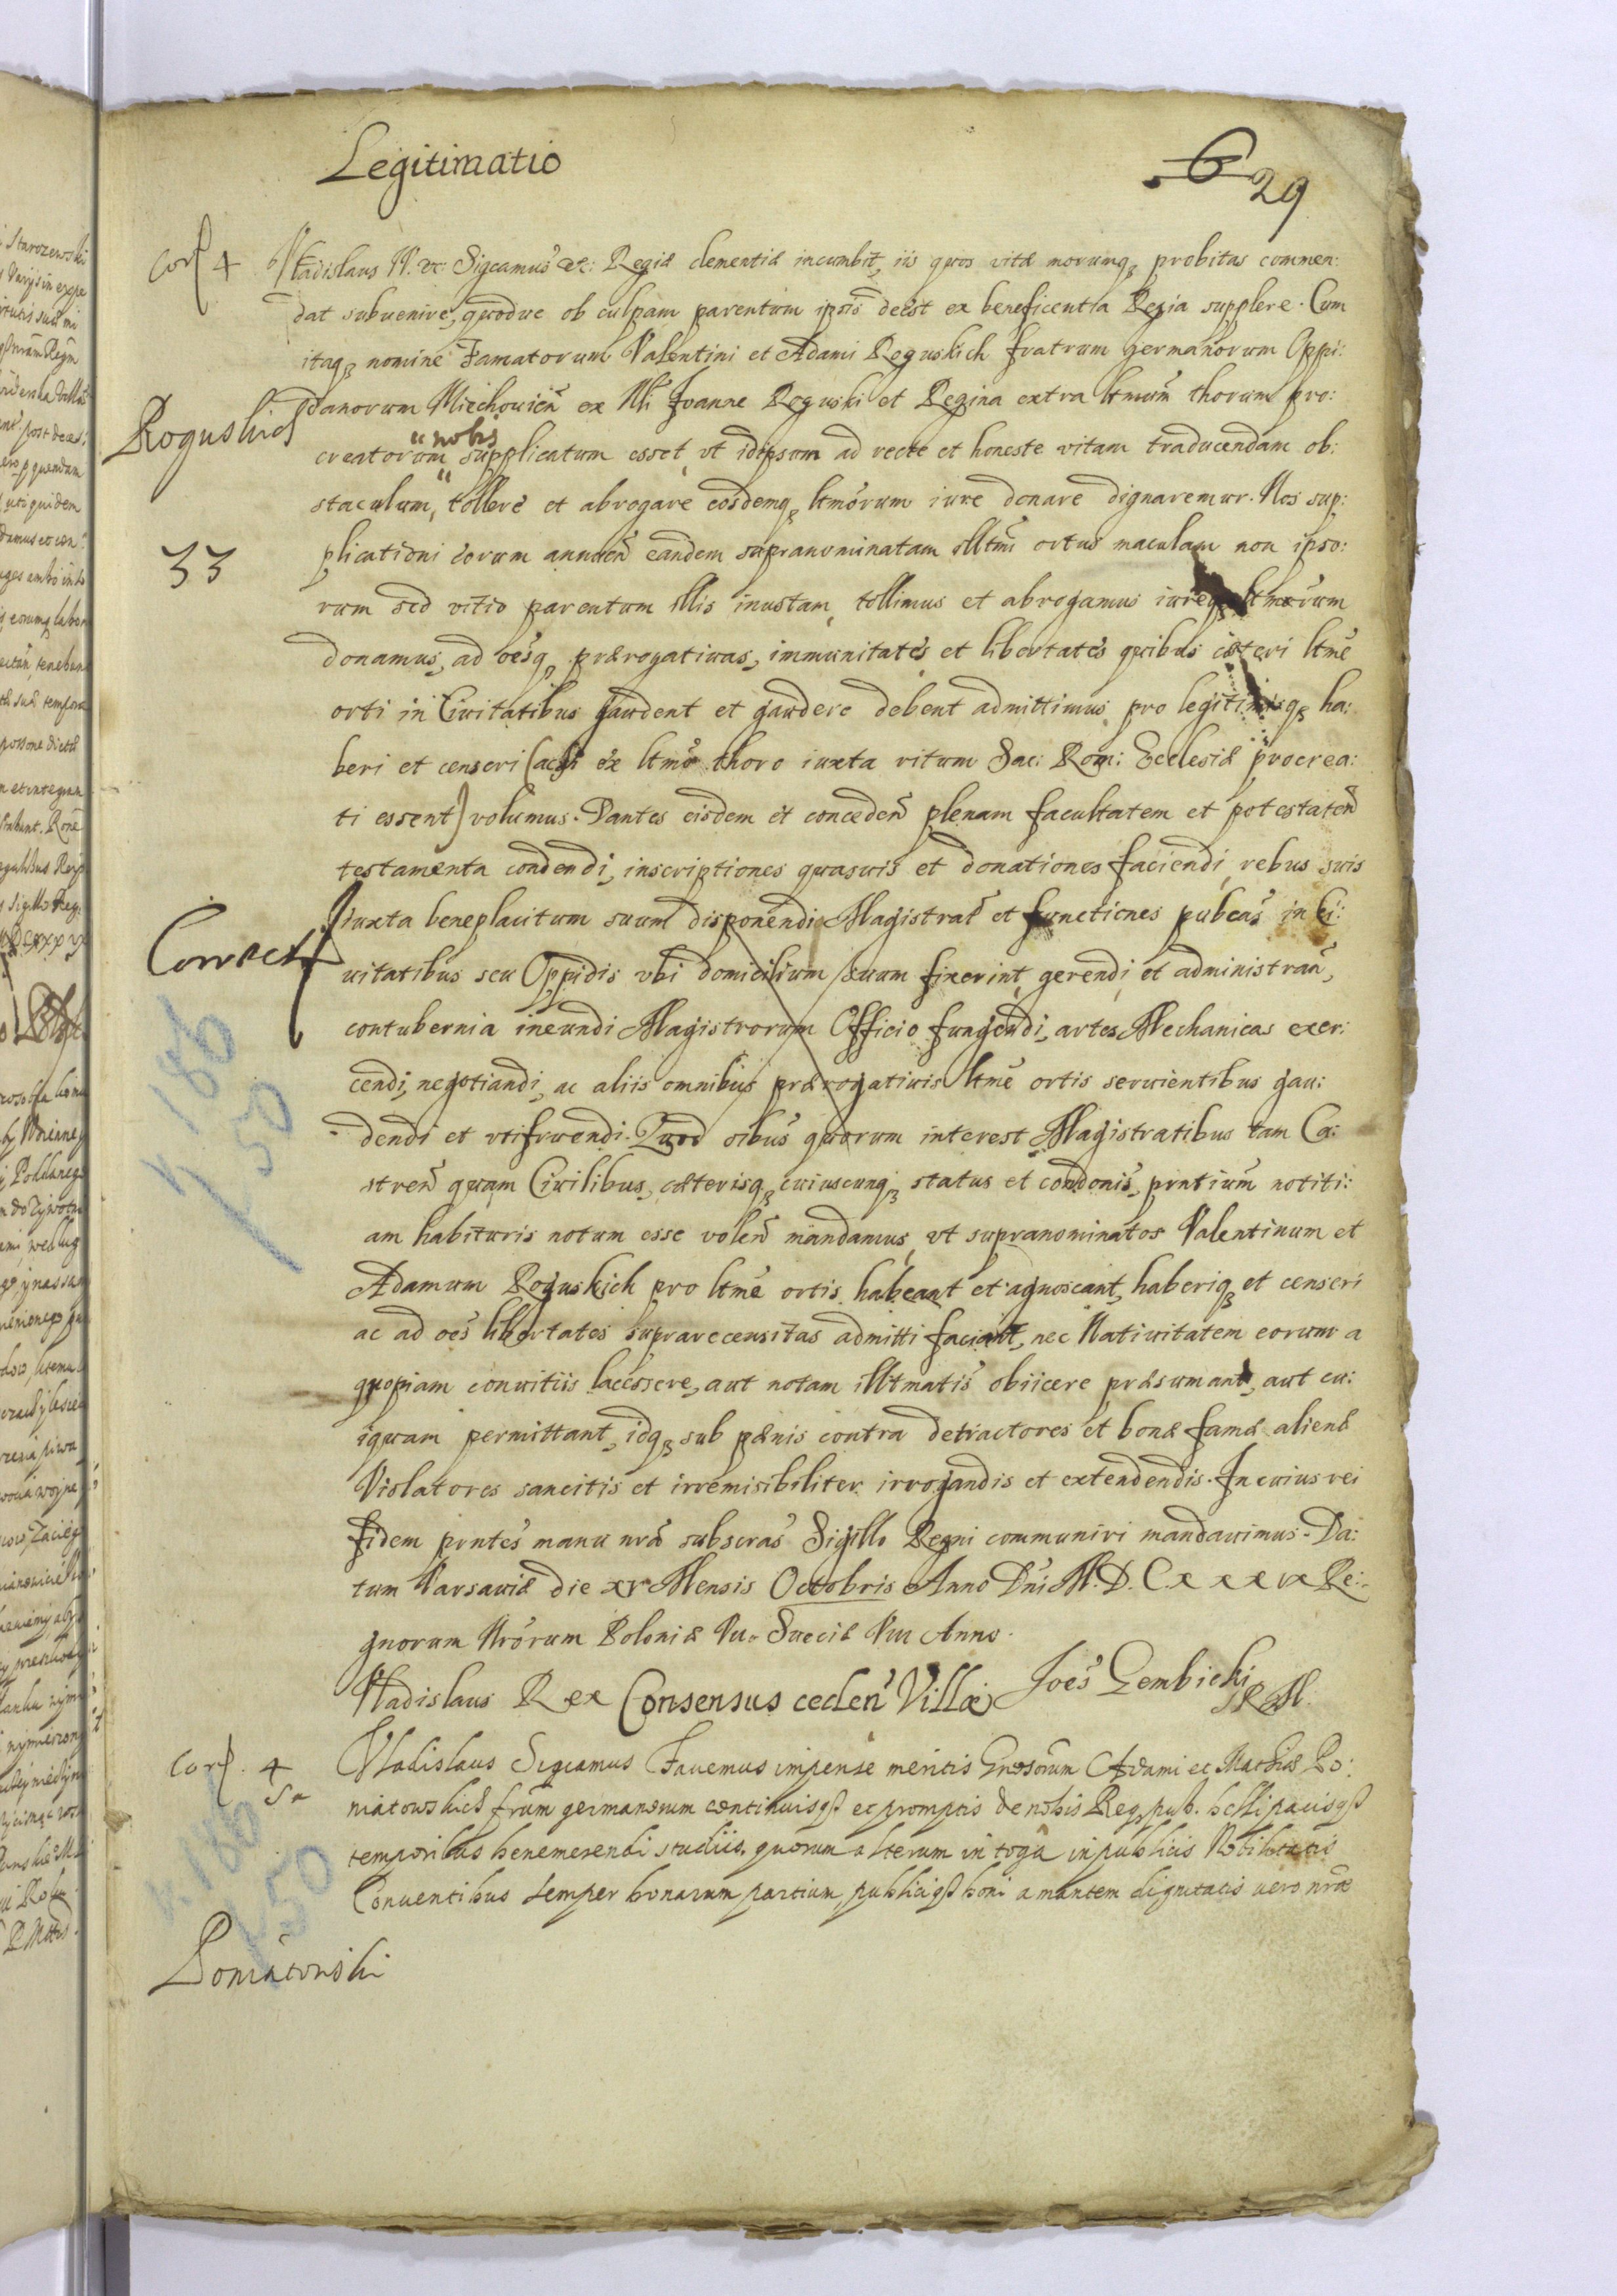 Legitimatio
6
29
Corf 4
Vladislaus IV. etc: Sigcamus etc: Regiæ clementiæ incumbit, iis quos vitæ morumq3 probitas commen:
dat subuenire, quodue ob culpam parentum ipsis deest ex beneficentia Regia supplere. Cum
itaq3 nomine Famatorum Valentini et Adami Roguskich fratrum germanorum Oppi:
Roguskich
danorum Miechouien ex Joanne Roguski et Regina extra ltmum thorum pro:
creatorum nobis supplicatum esset, vt idipsum ad recte et honeste vitam traducendam ob:
staculum, tollere et abrogare eosdemq3 ltmorum iure donare dignaremur. Nos sup:
33
plicationi eorum annuen eandem supranominatam illtmi ortus maculam non ipso:
rum sed vitio parentum illis inustam, tollimus et abrogamus iureq3 ltmorum
donamus, ad oesq3 prærogatiuas, immunitates et libertates quibus cæteri ltme
orti in Ciuitatibus gaudent et gaudere debent admittimus, pro legitimisq3 ha:
beri et censeri (acsi ex ltmo thoro iuxta ritum Sac: Rom: Ecclesiæ procrea:
ti essent) volumus. Dantes eisdem et conceden plenam facultatem et potestatem
testamenta condendi, inscriptiones quasuis et donationes faciendi, rebus suis
iuxta beneplacitum suum disponendi Magistrat et functiones pubcas in Ci:
Correct
uitatibus seu Oppidis vbi domicilium suum fixerint, gerendi et administran,
contubernia ineundi Magistrorum Officio fungendi, artes Mechanicas exer:
cendi, negotiandi, ac aliis omnibus prærogatiuis ltme ortis seruientibus gau:
dendi et vtifruendi. Quod oibus quorum interest Magistratibus tam Ca:
stren quam Ciuilibus, cæterisq3 cuiuscunq3 status et condonis, pntium notiti:
am habituris notum esse volen mandamus, vt supranominatos Valentinum et
Adamum Roguskich pro ltme ortis habeant et agnoscant, haberiq3 et censeri
ac ad oes libertates suprarecensitas admitti faciant, nec Natiuitatem eorum a
quopiam conuitiis lacessere, aut notam illtmatis obiicere præsumant, aut cu:
iquam permittant, idq3 sub pænis contra detractores et bonæ famæ alienæ
Violatores sancitis et irremisibiliter irrogandis et extendendis. In cuius rei
fidem pntes manu nra subscras Sigillo Regni communiri mandauimus. Da:
tum Varsauiæ die xv Mensis Octobris Anno Dni M. D. C. x x x ix Re:
gnorum Nrorum Poloniæ VII. Sueciæ VIII Anno.
Vladislaus Rex
Joes Gembicki
Consensus ceden Villæ
Corf. 4
Vladislaus Sigcamus Fauemus impense meritis Gnosorum Adami et Mathiæ Po:
niatowskich frum germanorum continuisq3 et promptis de nobis Reqpub. belli pacisq3
temporibus benemerendi studiis, quorum alterum in toga in publicis Nobilitatis
Conuentibus semper bonarum partium, publiciq3 boni amantem dignitatis uero nræ
k 186
f 50
k. 186
f 50
Poniatowski